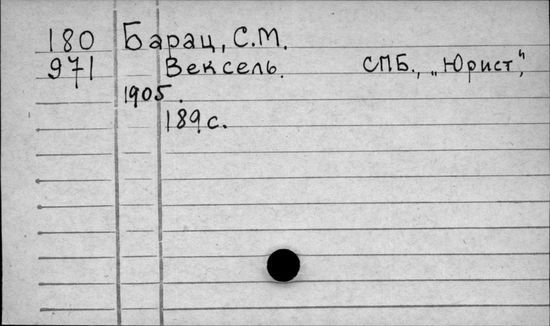 180 Барац, С.М.
971 Вексель. СПБ., „Юрист“,
1905.
189 с.